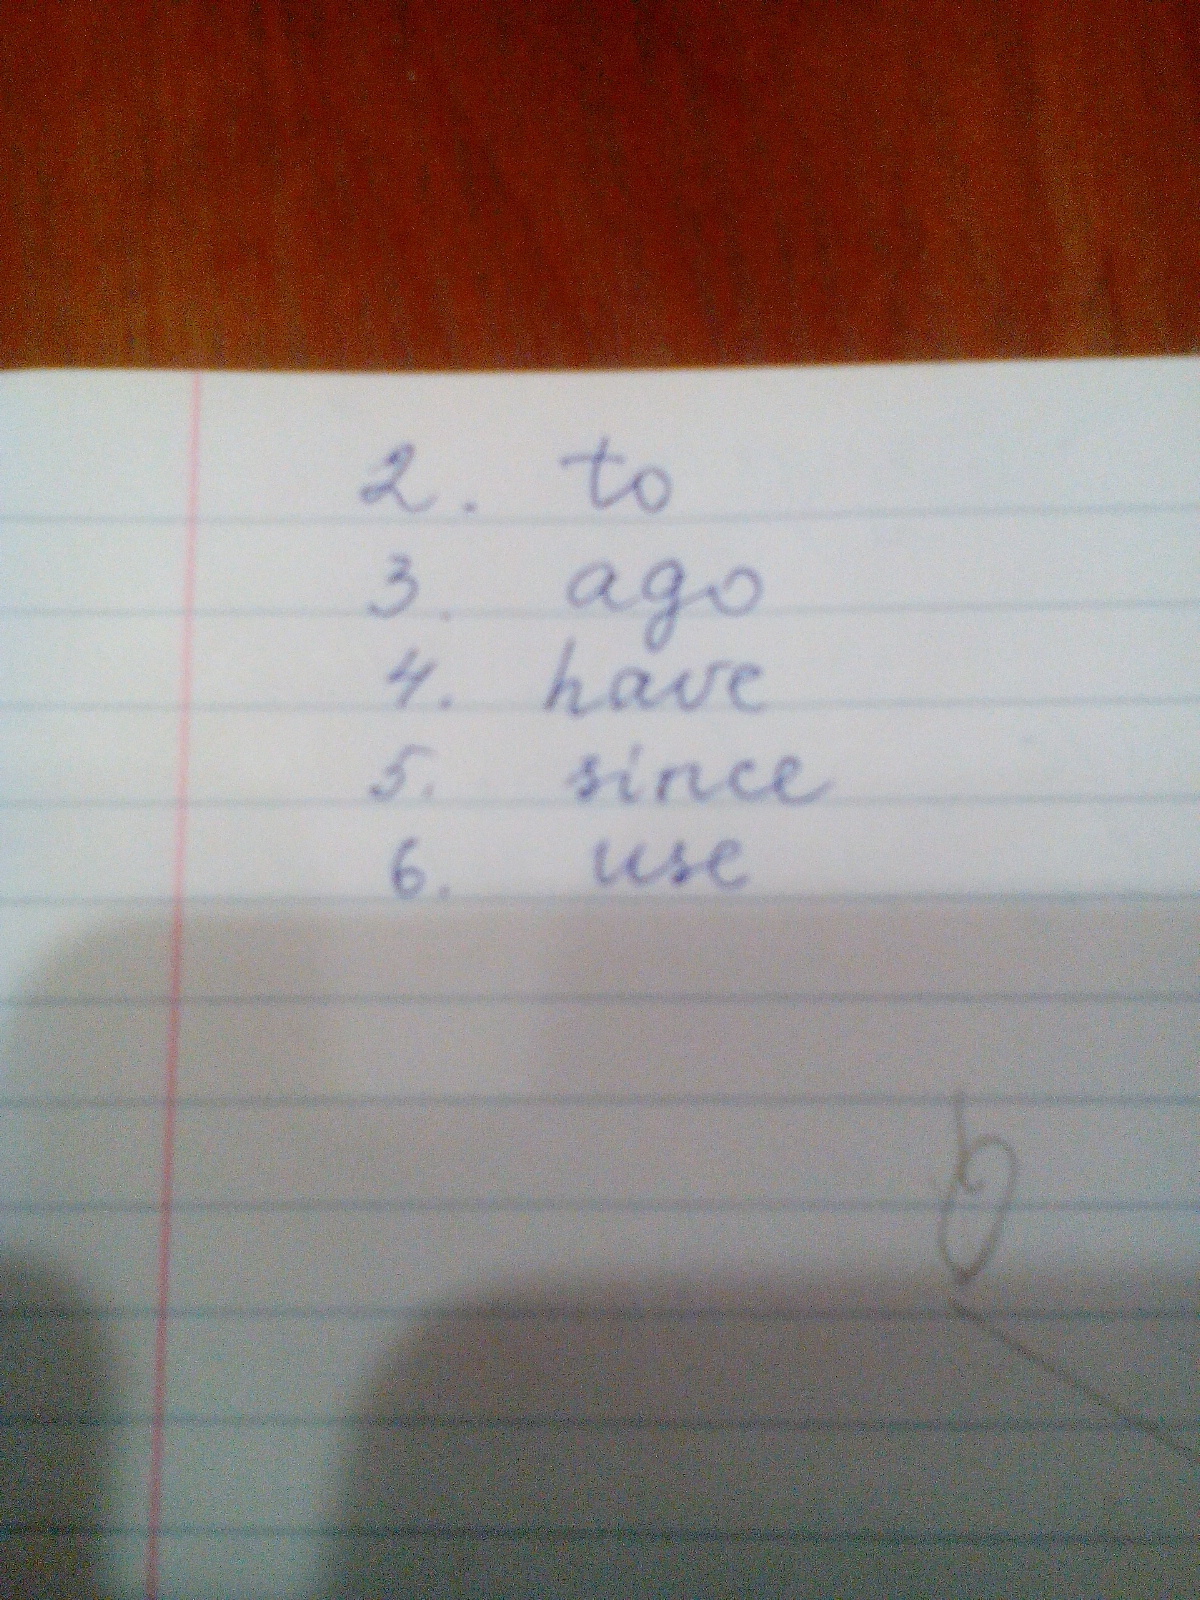 2. to
3. ago
4. have
5. since
6. use